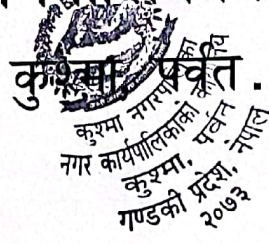 कुश्मा, पर्वत .
कुश्मा नगरपालिका
नगर कार्यपालिकाको कार्यालय
कुश्मा, पर्वत
गण्डकी प्रदेश, नेपाल
२०७३